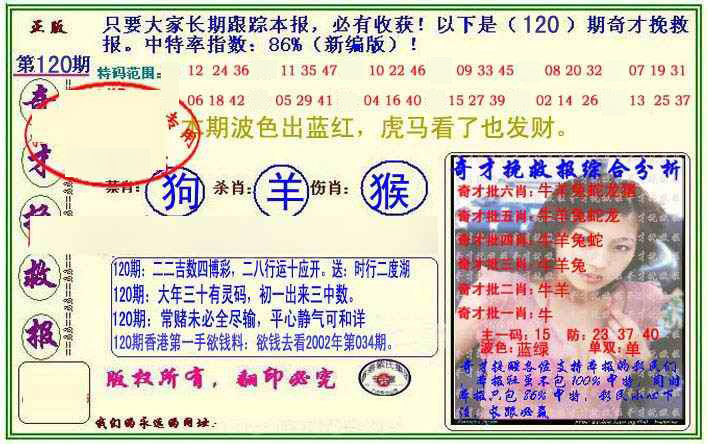 正版
只要大家长期跟踪本报，必有收获！以下是（120）期奇才挽救
报。中特率指数：86%（新编版）！
第120期
特码范围：
12 24 36 11 35 47 10 22 46 09 33 45 08 20 32 07 19 31
06 18 42 05 29 41 04 16 40 15 27 39 02 14 26 13 25 37
专用
本期波色出蓝红，虎马看了也发财。
奇才挽救报
禁肖：狗 杀肖：羊 伤肖：猴
120期：二二吉数四博彩，二八行运十应开。送：时行二度湖
120期：大年三十有灵码，初一出来三中数。
120期：常赌未必全尽输，平心静气可和详
120期香港第一手欲钱料：欲钱去看2002年第034期。
版权所有，翻印必究
我们的永远的网址：
奇才挽救报综合分析
奇才批六肖：牛羊兔蛇龙猪
奇才批五肖：牛羊兔蛇龙
奇才批四肖：牛羊兔蛇
奇才批三肖：牛羊兔
奇才批二肖：牛羊
奇才批一肖：牛
主一码：15 防：23 37 40
波色：蓝绿 单双：单
奇才提醒各位支持本报的彩民们
本报社虽不包100%中特，同时
本报只包86%中特，彩民小心下
注 长跟必赢